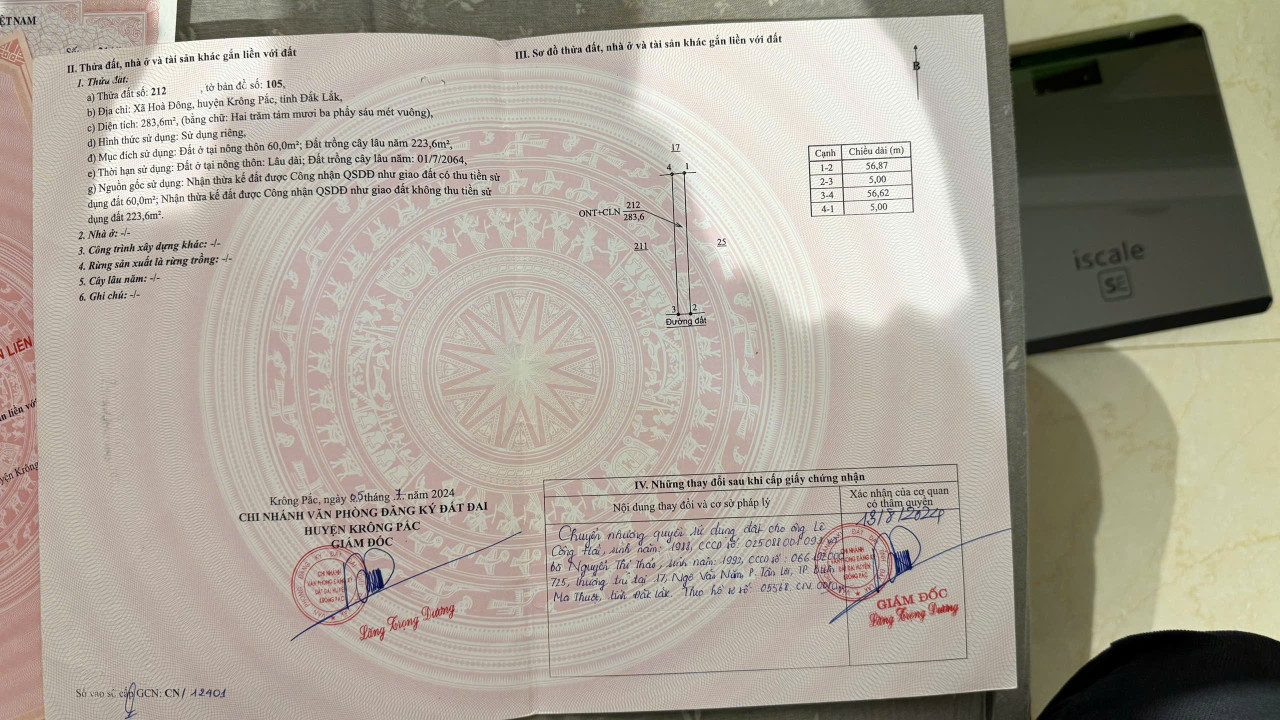 ỆT NAM
II. Thửa đất, nhà ở và tài sản khác gắn liền với đất
1. Thửa đất:
a) Thửa đất số: 212 , tờ bản đồ số: 105,
b) Địa chỉ: Xã Hoà Đông, huyện Krông Pắc, tỉnh Đắk Lắk,
c) Diện tích: 283,6m², (bằng chữ: Hai trăm tám mươi ba phẩy sáu mét vuông),
d) Hình thức sử dụng: Sử dụng riêng,
đ) Mục đích sử dụng: Đất ở tại nông thôn 60,0m²; Đất trồng cây lâu năm 223,6m²,
e) Thời hạn sử dụng: Đất ở tại nông thôn: Lâu dài; Đất trồng cây lâu năm: 01/7/2064,
g) Nguồn gốc sử dụng: Nhận thừa kế đất được Công nhận QSDĐ như giao đất có thu tiền sử
dụng đất 60,0m²; Nhận thừa kế đất được Công nhận QSDĐ như giao đất không thu tiền sử
dụng đất 223,6m².
2. Nhà ở: -/-
3. Công trình xây dựng khác: -/-
4. Rừng sản xuất là rừng trồng: -/-
5. Cây lâu năm: -/-
6. Ghi chú: -/-
Krông Pắc, ngày 05 tháng 7 năm 2024
CHI NHÁNH VĂN PHÒNG ĐĂNG KÝ ĐẤT ĐAI
HUYỆN KRÔNG PẮC
GIÁM ĐỐC
CHI NHÁNH
VĂN PHÒNG ĐĂNG KÝ
ĐẤT ĐAI HUYỆN
KRÔNG PẮC
Lăng Trọng Dương
Số vào sổ cấp GCN: CN/ 12401
III. Sơ đồ thửa đất, nhà ở và tài sản khác gắn liền với đất
B
17
4 1
ONT+CLN 212
283,6
211
25
3 2
Đường đất
Cạnh Chiều dài (m)
1-2 56,87
2-3 5,00
3-4 56,62
4-1 5,00
IV. Những thay đổi sau khi cấp giấy chứng nhận
Nội dung thay đổi và cơ sở pháp lý
Xác nhận của cơ quan
có thẩm quyền
Chuyển nhượng quyền sử dụng đất cho ông Lê
Công Hai, sinh năm: 1988, CCCD số: và
bà Nguyễn Thị Thảo, sinh năm: 1992, CCCD số:
725, thường trú tại 17, Ngô Văn Năm, P. Tân Lợi, TP. Buôn
Ma Thuột, tỉnh Đắk Lắk. Theo hồ sơ số: 05568.CN.
13/8/2024
GIÁM ĐỐC
Lăng Trọng Dương
iscale
SE
N LIỀN
ắn liền với
yện Krông